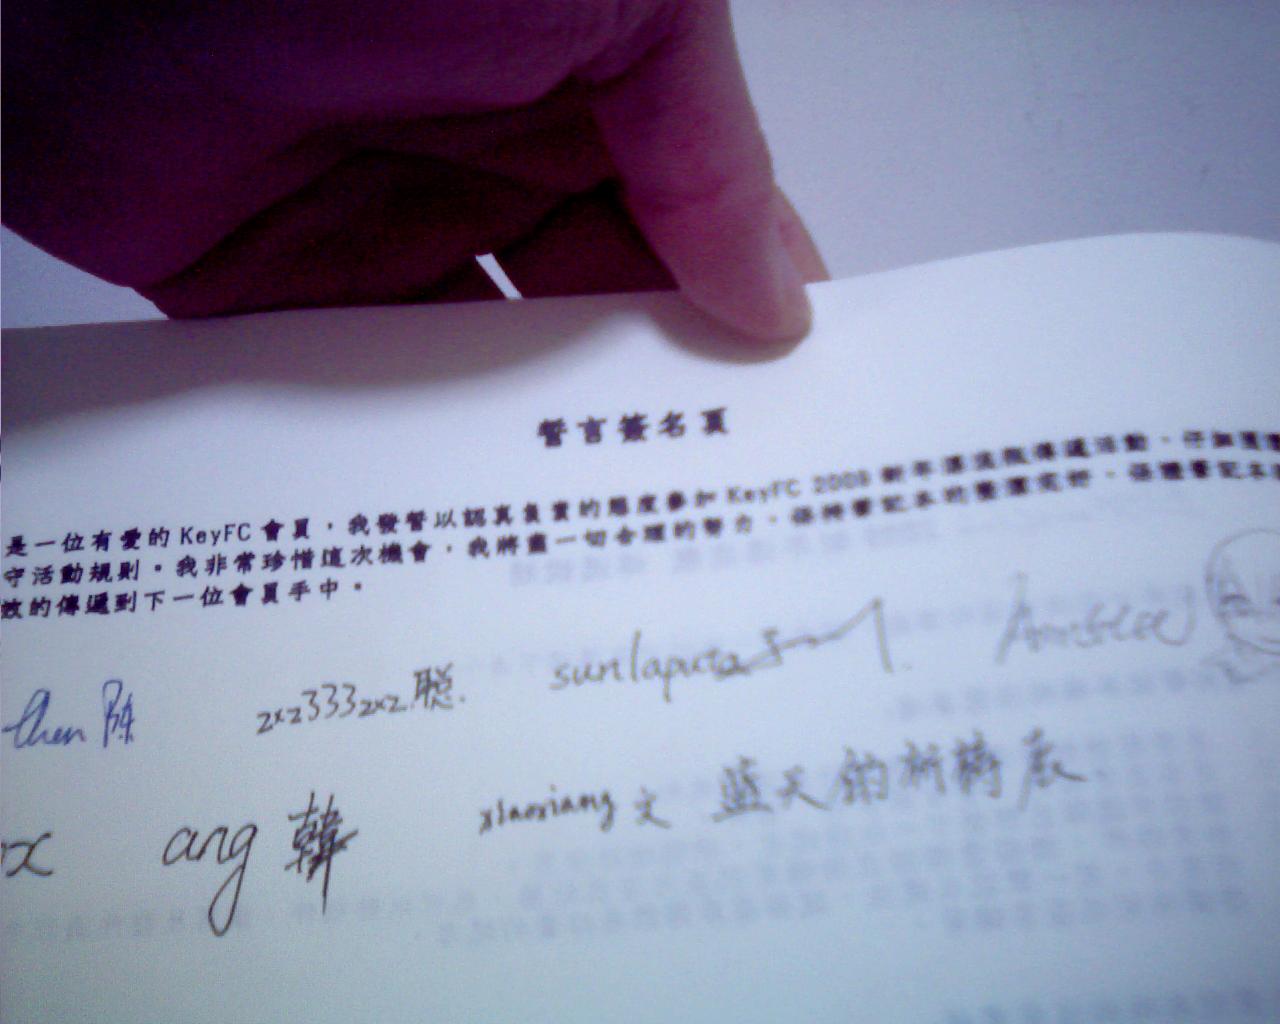 誓言簽名頁
是一位有愛的 KeyFC 會員，我發誓以認真負責的態度參加 KeyFC 2009 新年漂流瓶傳遞活動，仔細閱
守活動規則。我非常珍惜這次機會，我將盡一切合理的努力，保持筆記本的整潔完好，保證筆記本
效的傳遞到下一位會員手中。
chen 陈 zxz333zxz 聪. sunlaputa
ang 韓 xiaoxiang 文 蓝天的